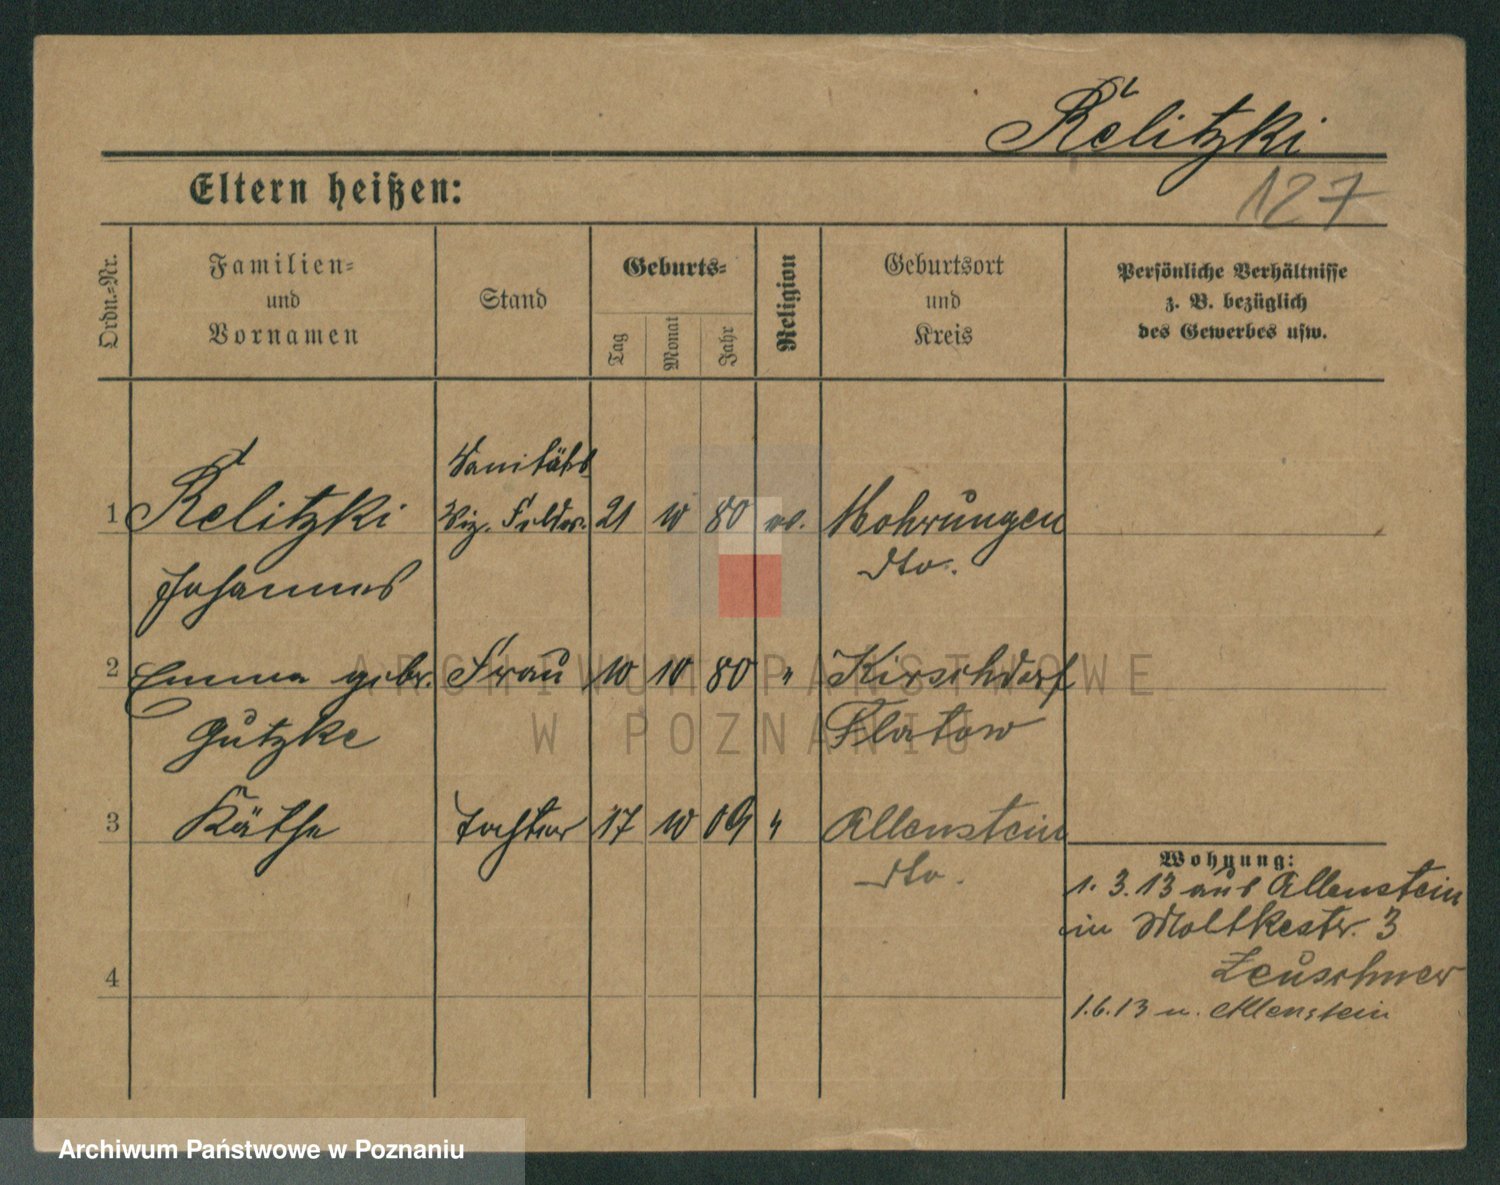 Relitzki
127
Eltern heißen:
Ordn.-Nr.
Familien-
und
Vornamen
Stand
Geburts-
Tag
Monat
Jahr
Religion
Geburtsort
und
Kreis
Persönliche Verhältnisse
z. B. bezüglich
des Gewerbes usw.
Sanitäts
1 Relitzki Viz. Feldw. 21 10 80 ev. Mohrungen
dto.
Johannes
2 Emma gebr. Frau 10 10 80 " Kirschdorf
Gutzke Flatow
3 Käthe Tochter 17 10 09 " Allenstein
dto.
Wohnung:
1. 3. 13 aus Allenstein
in Moltkestr. 3
Zeuschner
4
1.6.13 n. Allenstein
ARCHIWUM PAŃSTWOWE
W POZNANIU
Archiwum Państwowe w Poznaniu